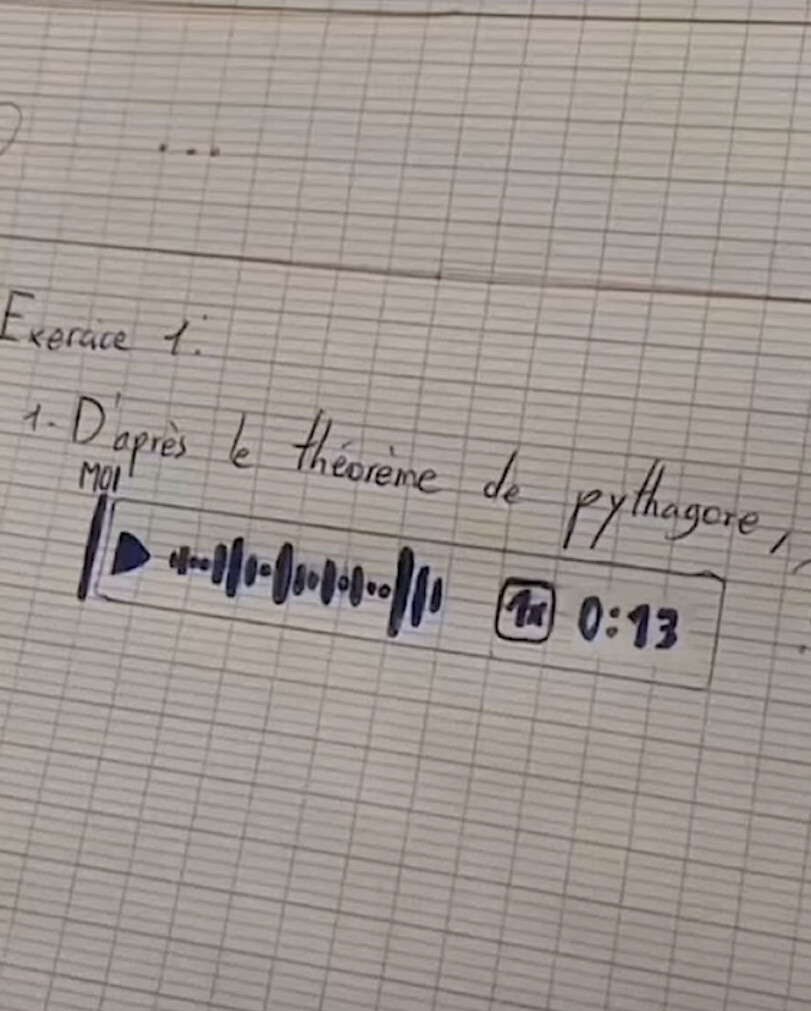 ...
Exercice 1:
1. D'après le théorème de pythagore,
MOI
1x 0:13